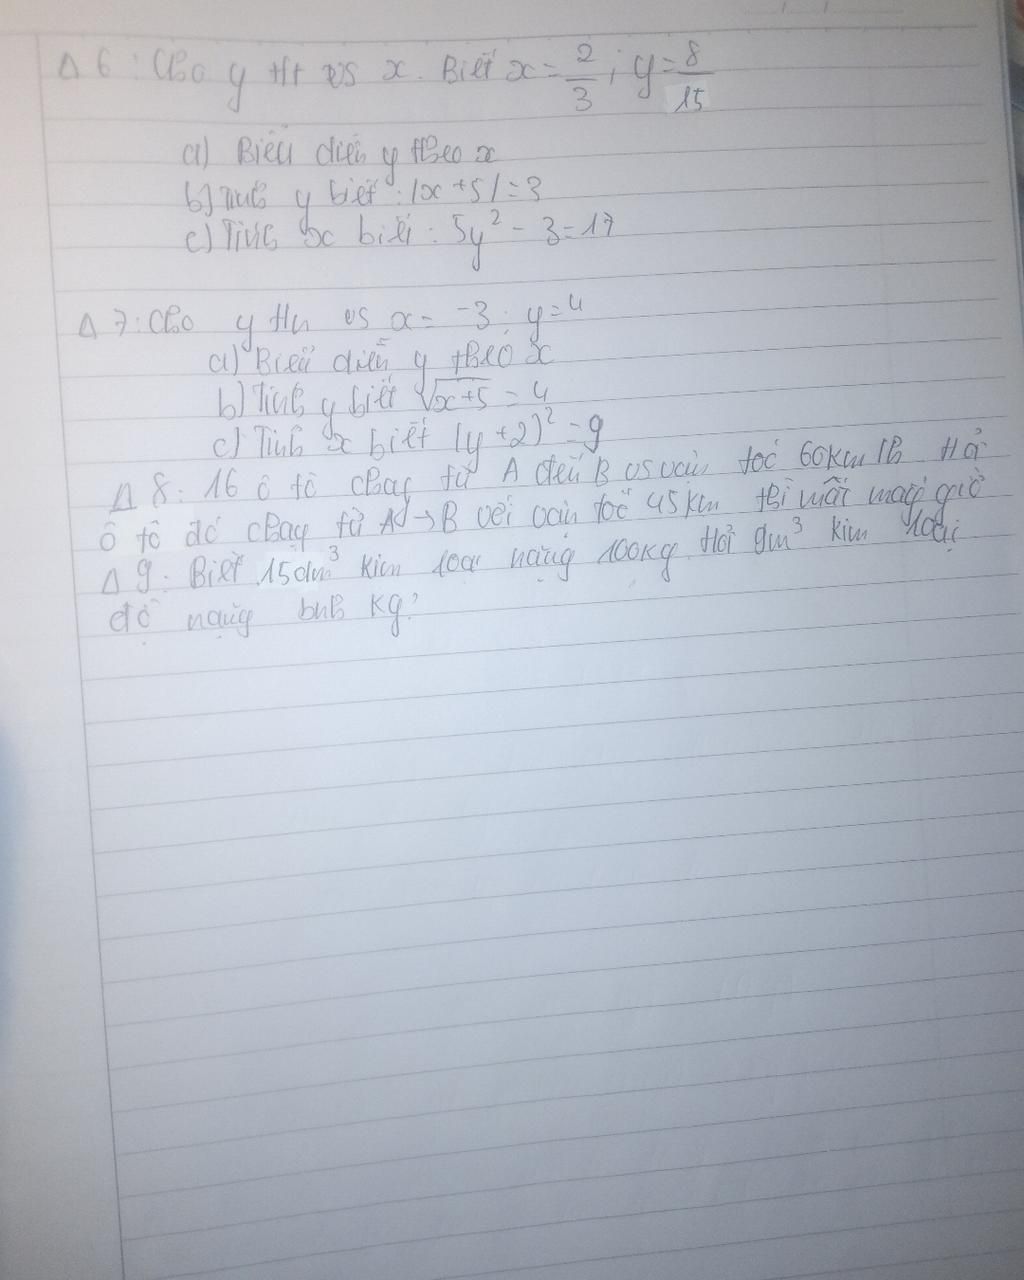 Δ 6 : Cho y tlt vs x. Biết x = 2/3 ; y = 8/15
a) Biểu diễn y theo x
b) Tính y biết : |x + 5| = 3
c) Tính x biết : 5y² - 3 = 17
Δ 7 : Cho y tln vs x = -3 ; y = 4
a) Biểu diễn y theo x
b) Tính y biết √(x+5) = 4
c) Tính x biết (y + 2)² = 9
Δ 8 : 16 ô tô chạy từ A đến B vs vận tốc 60km/h Hỏi
ô tô đó chạy từ A → B với vận tốc 45 km thì mất mấy giờ
Δ 9 : Biết 15dm³ kim loại nặng 100kg. Hỏi 9m³ kim loại
đó nặng bnh kg?